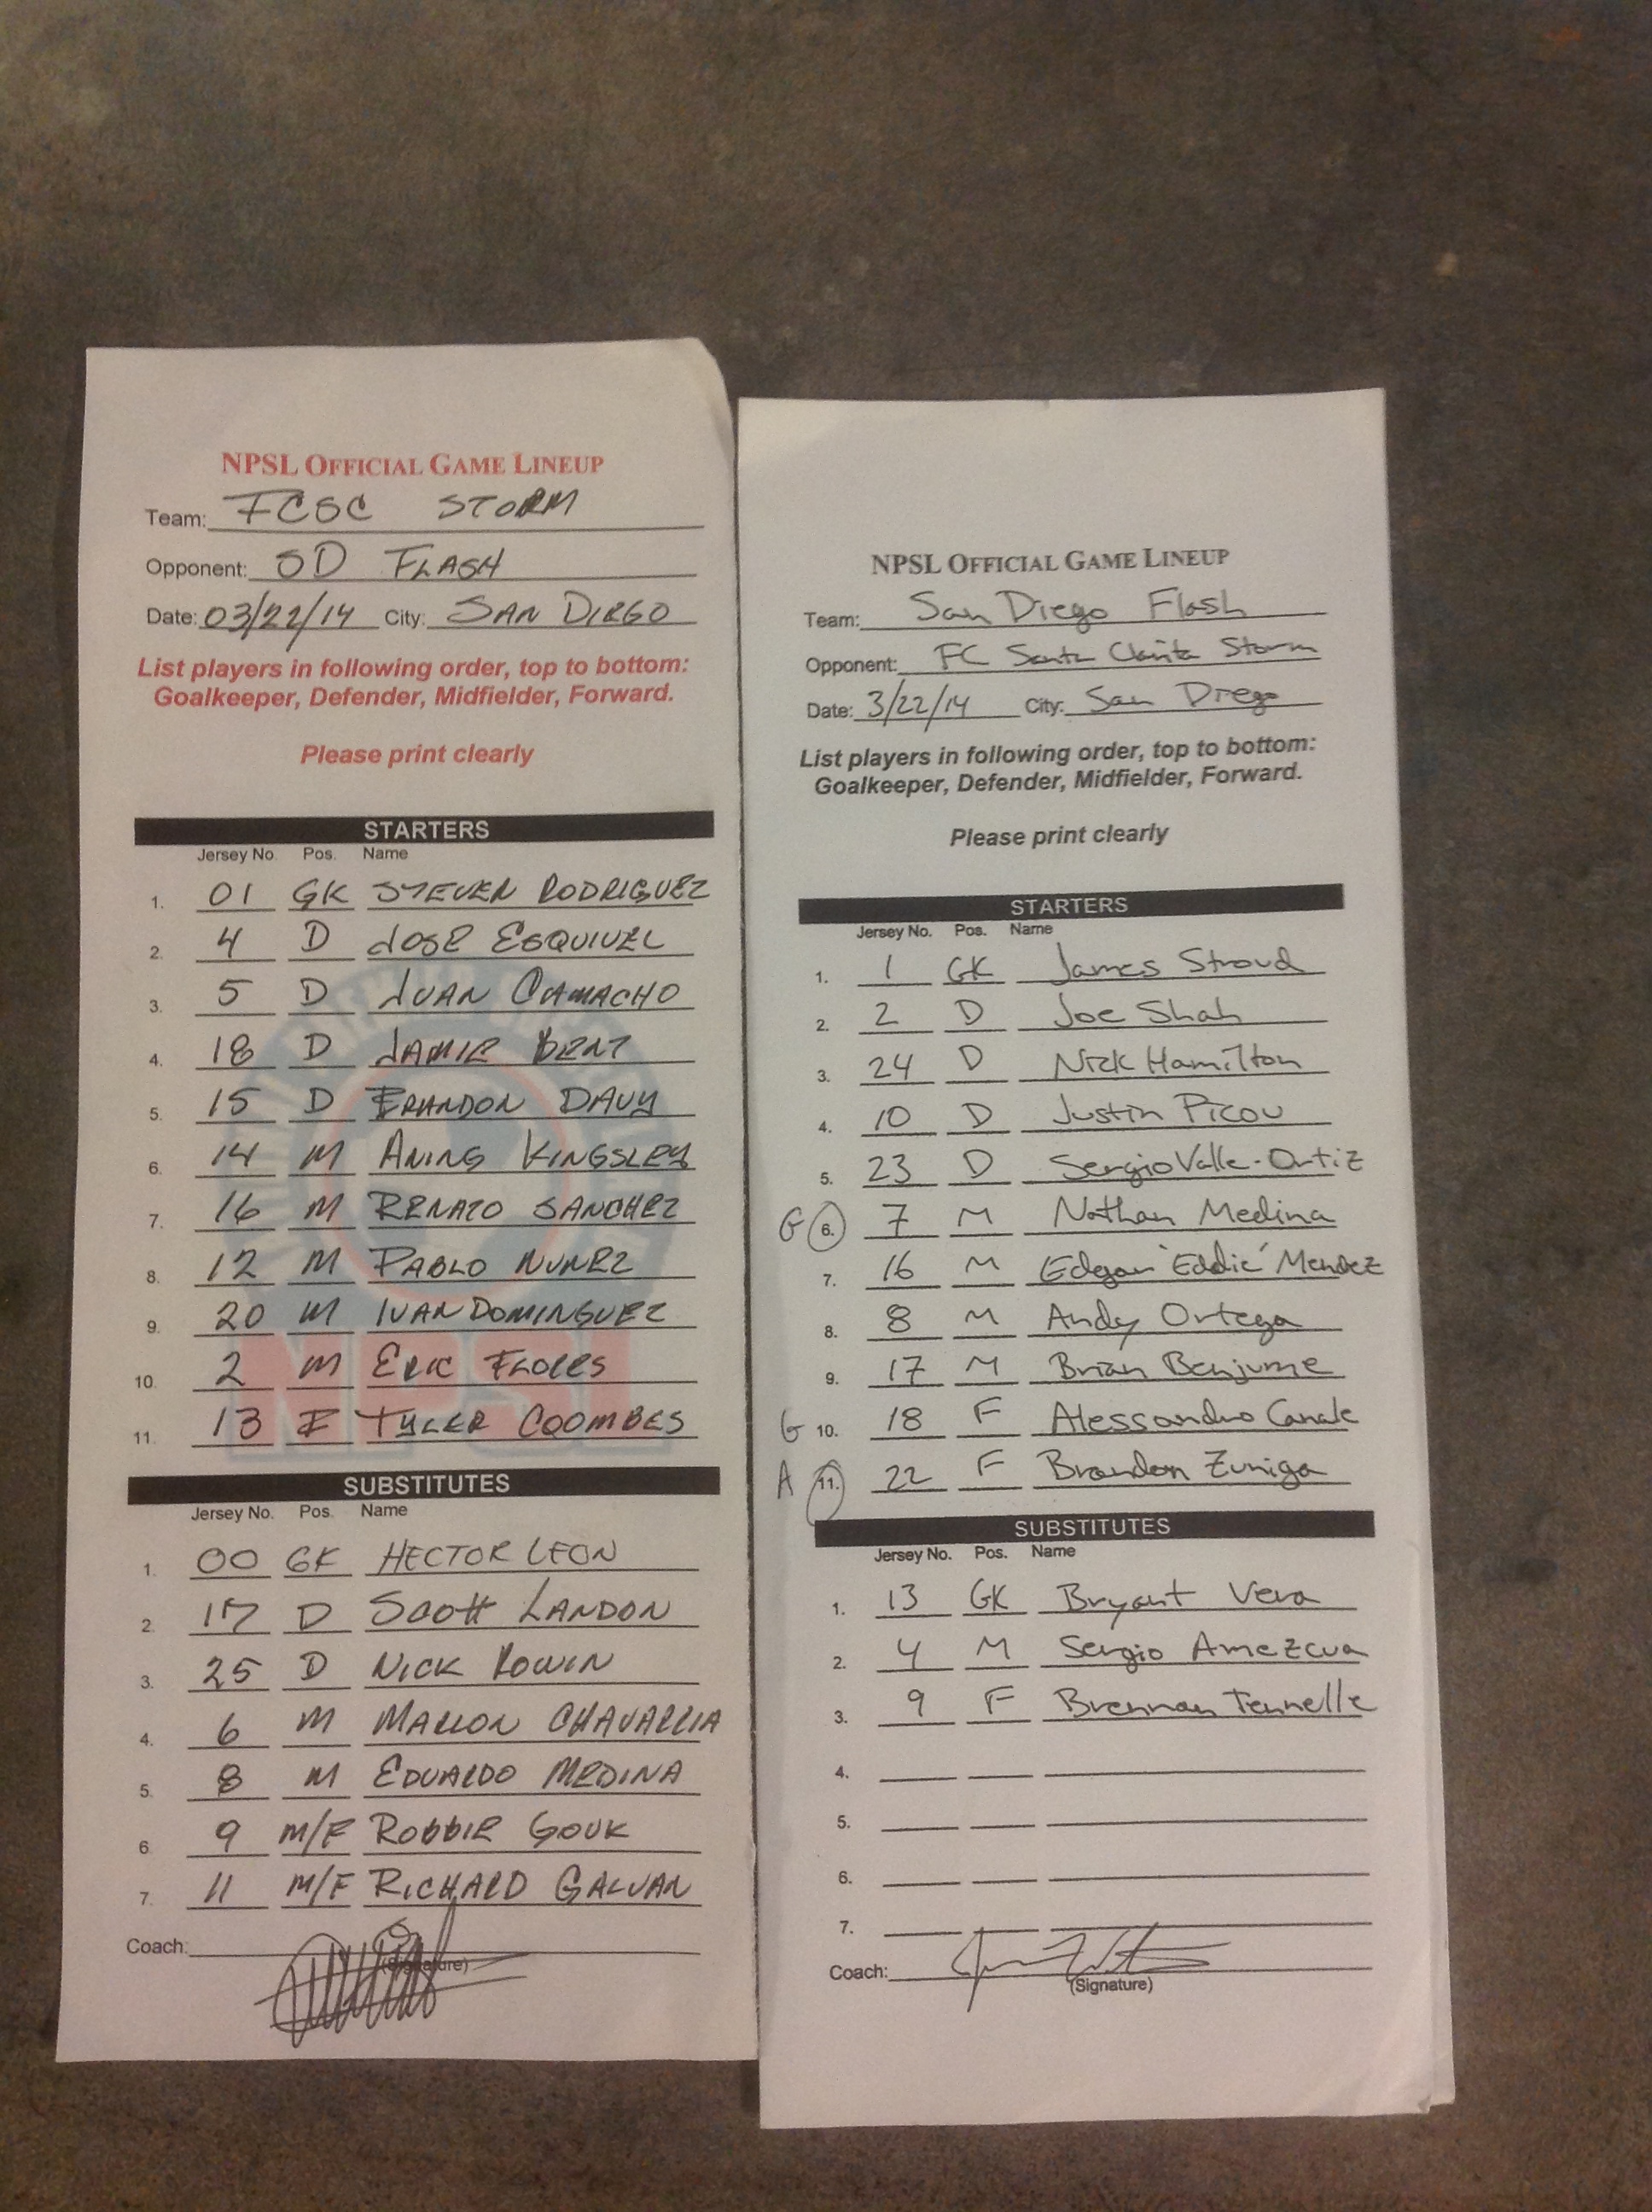 NPSL OFFICIAL GAME LINEUP
Team: FCSC STORM
Opponent: SD FLASH
Date: 03/22/14 City: SAN DIEGO
List players in following order, top to bottom:
Goalkeeper, Defender, Midfielder, Forward.
Please print clearly
STARTERS
Jersey No. Pos. Name
1. 01 GK STEVEN RODRIGUEZ
2. 4 D JOSE ESQUIVEL
3. 5 D JUAN CAMACHO
4. 18 D JAMIE BENT
5. 15 D BRANDON DAVY
6. 14 M ANING KINGSLEY
7. 16 M RENATO SANCHEZ
8. 12 M PABLO NUNEZ
9. 20 M IVAN DOMINGUEZ
10. 2 M ERIC FLORES
11. 13 F TYLER COOMBES
SUBSTITUTES
Jersey No. Pos. Name
1. 00 GK HECTOR LEON
2. 17 D SCOTT LANDON
3. 25 D NICK ROWIN
4. 6 M MARLON CHAVARRIA
5. 8 M EDUARDO MEDINA
6 9 M/F ROBBIE GOUK
7. 11 M/F RICHARD GALVAN
Coach:
(Signature)
NPSL
NPSL OFFICIAL GAME LINEUP
Team: San Diego Flash
Opponent: FC Santa Clarita Storm
Date: 3/22/14 City: San Diego
List players in following order, top to bottom:
Goalkeeper, Defender, Midfielder, Forward.
Please print clearly
STARTERS
Jersey No. Pos. Name
1. 1 GK James Stroud
2. 2 D Joe Shah
3. 24 D Nick Hamilton
4. 10 D Justin Picou
5. 23 D Sergio Valle-Ortiz
G 6. 7 M Nathan Medina
7. 16 M Edgar "Eddie" Mendez
8. 8 M Andy Ortega
9. 17 M Brian Benjume
G 10. 18 F Alessandro Canale
A 11. 22 F Brandon Zuniga
SUBSTITUTES
Jersey No. Pos. Name
1. 13 GK Bryant Vera
2. 4 M Sergio Amezcua
3. 9 F Brennan Tennelle
4.
5.
6.
7.
Coach:
(Signature)